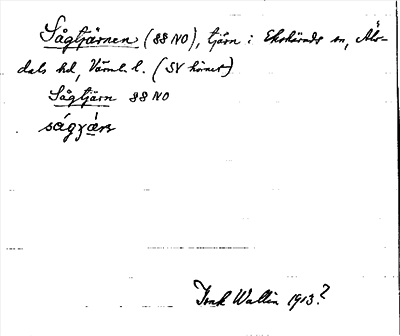 Sågtjärnen (88 NO), tjärn i Ekshärads sn, Älv-
dals hd, Värml. l. (SV hörnet)
Sågtjärn 88 NO
Isak Wallin 1913?